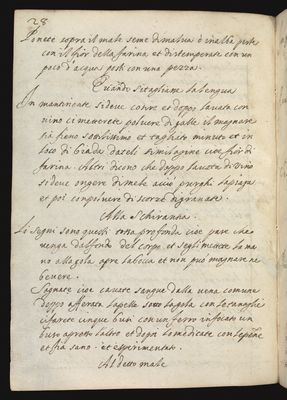 28
Ponete sopra il male seme di malua ò malua pesta
con il fior della farina et distemperate con un
poco d'acqua posti con una pezza.
Quando si tagliano la lengua
In mantinente si deve cosire et doppo lavata con
vino ci metterete polvere di galle il mangiare
sia fieno sottilissimo et tagliato minuto et in
loco di biada dateli semolagine cioè fior di
farina. Altri dicono che doppo lavata di vino
si deve ongere di mele acciò purghi la piaga
et poi con polvere di scorze di granate.
Alla Schirantia.
Li segni sono questi tossa profonda cioè pare che
venga dal fondo del corpo et se gli mettete la ma
no alla gola apre la bocca et non può mangiare ne
bevere.
Signate cioè cavate sangue dalla vena comune
doppo afferrate la pelle sotto la gola con le tanaglie
et farete cinque busi con un ferro infocato un
buso apresso l'altro et dopo la medicate con
et sia sano. et esperimentato.
Al detto male